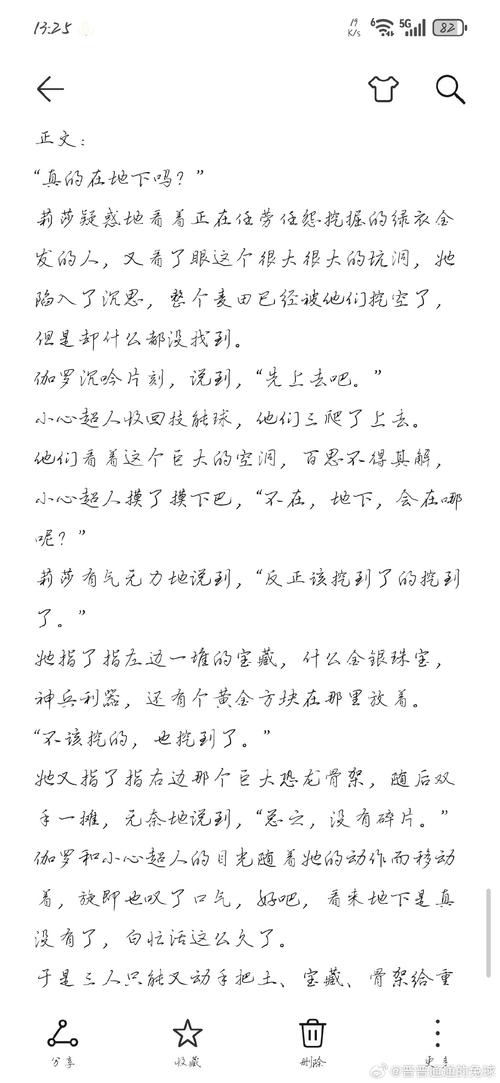 13:25
19
K/s
6
5G
82
正文：
“真的在地下吗？”
莉莎疑惑地看着正在任劳任怨挖掘的绿衣金
发的人，又看了眼这个很大很大的坑洞，她
陷入了沉思，整个麦田已经被他们挖空了，
但是却什么都没找到。
伽罗沉吟片刻，说到，“先上去吧。”
小心超人收回技能球，他们三爬了上去。
他们看着这个巨大的空洞，百思不得其解，
小心超人摸了摸下巴，“不在，地下，会在哪
呢？”
莉莎有气无力地说到，“反正该挖到了的挖到
了。”
她指了指左边一堆的宝藏，什么金银珠宝，
神兵利器，还有个黄金方块在那里放着。
“不该挖的，也挖到了。”
她又指了指右边那个巨大恐龙骨架，随后双
手一摊，无奈地说到，“总之，没有碎片。”
伽罗和小心超人的目光随着她的动作而移动
着，旋即也叹了口气，好吧，看来地下是真
没有了，白忙活这么久了。
于是三人只能又动手把土、宝藏、骨架给重
分享
收藏
删除
更多
@普普通通的兔球